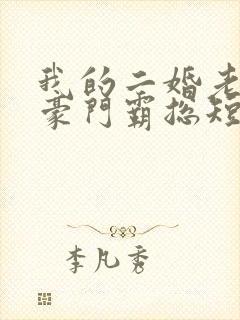 我的二婚老
豪門霸总短
李凡秀